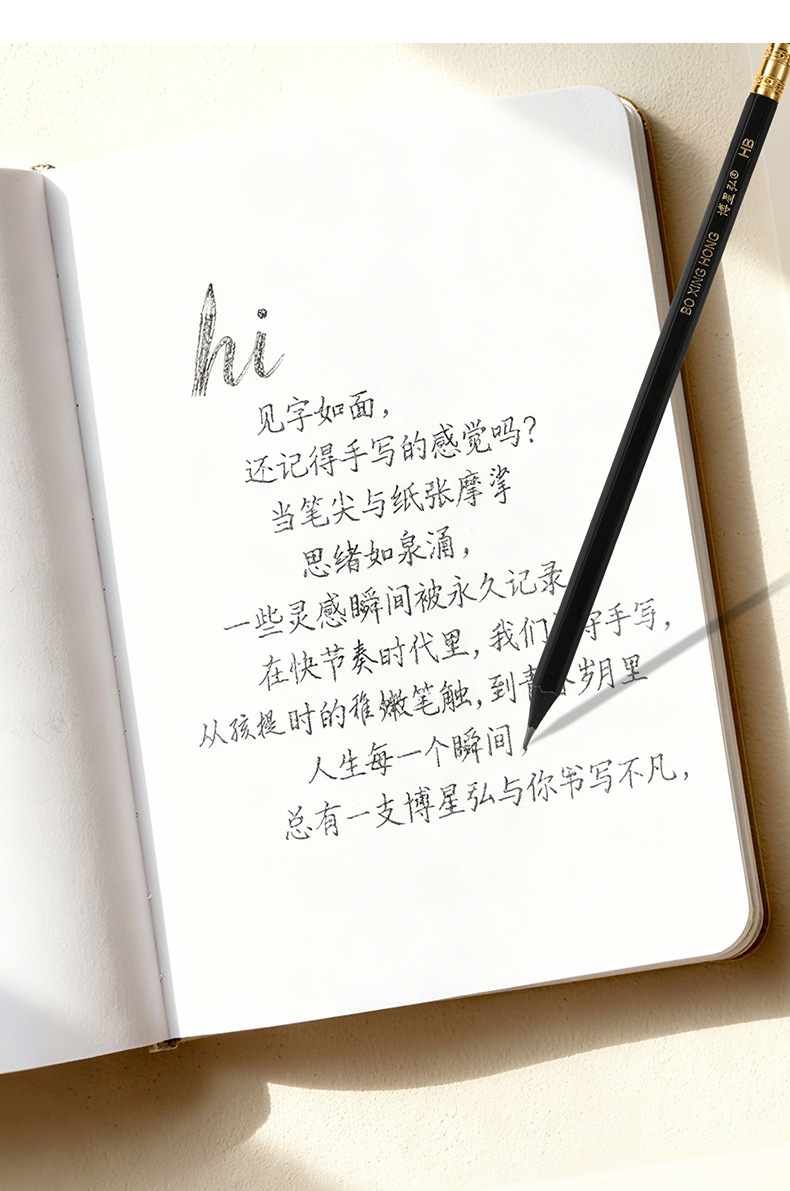 hi
见字如面，
还记得手写的感觉吗？
当笔尖与纸张摩挲
思绪如泉涌，
一些灵感瞬间被永久记录
在快节奏时代里，我们 手写，
从孩提时的稚嫩笔触，到青春岁月里
人生每一个瞬间，
总有一支博星弘与你书写不凡，
BO XING HONG 博星弘® HB